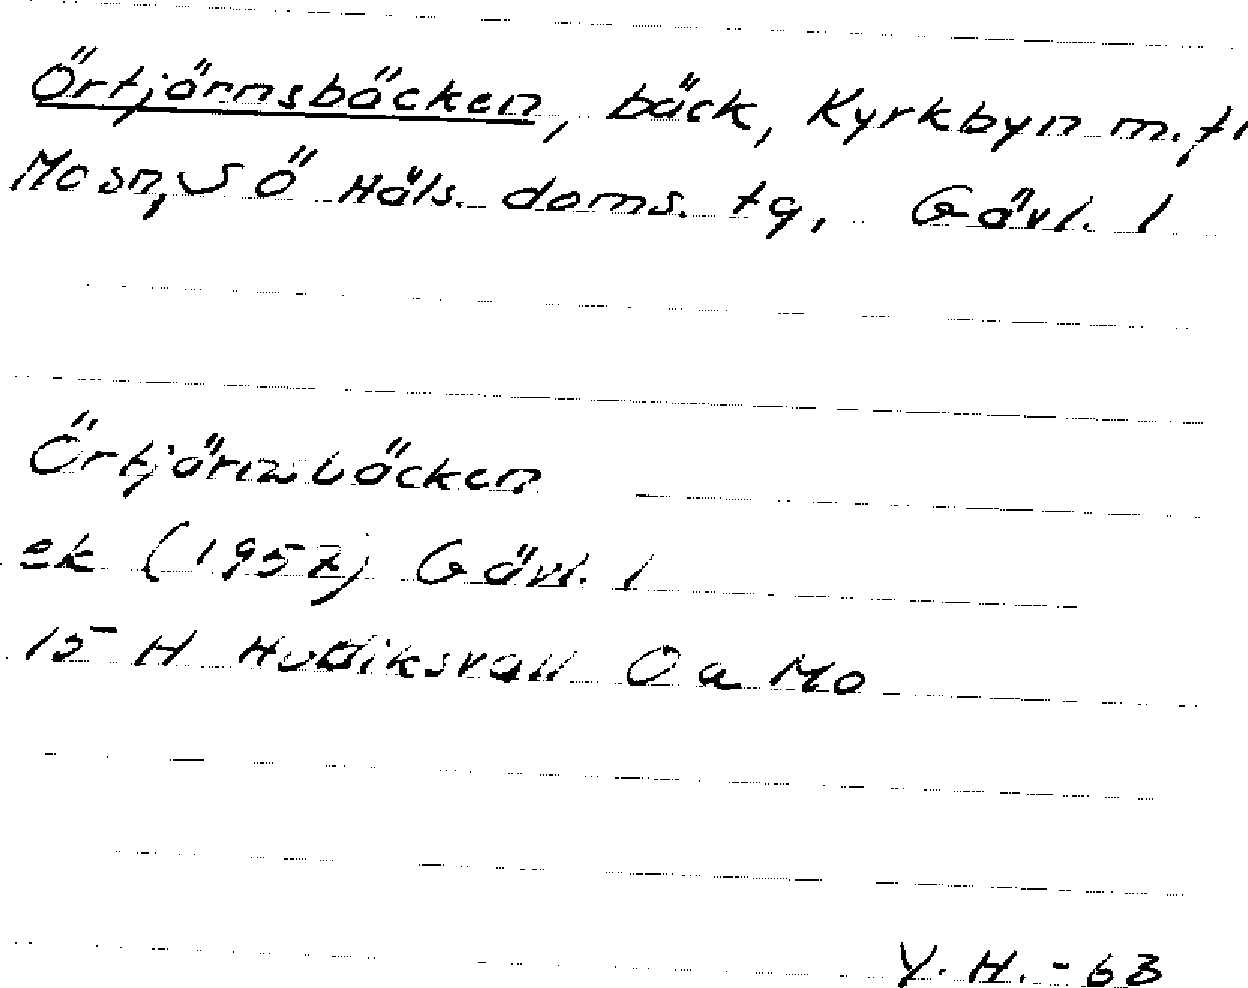 Örtjärnsbäcken, bäck, Kyrkbyn m.fl
Mo sn, S Ö Häls. doms. tg, Gävl. l
Örtjärnsbäcken
ek (1957) Gävl. l
15 H Hudiksvall Ö a Mo
Y. H. - 63